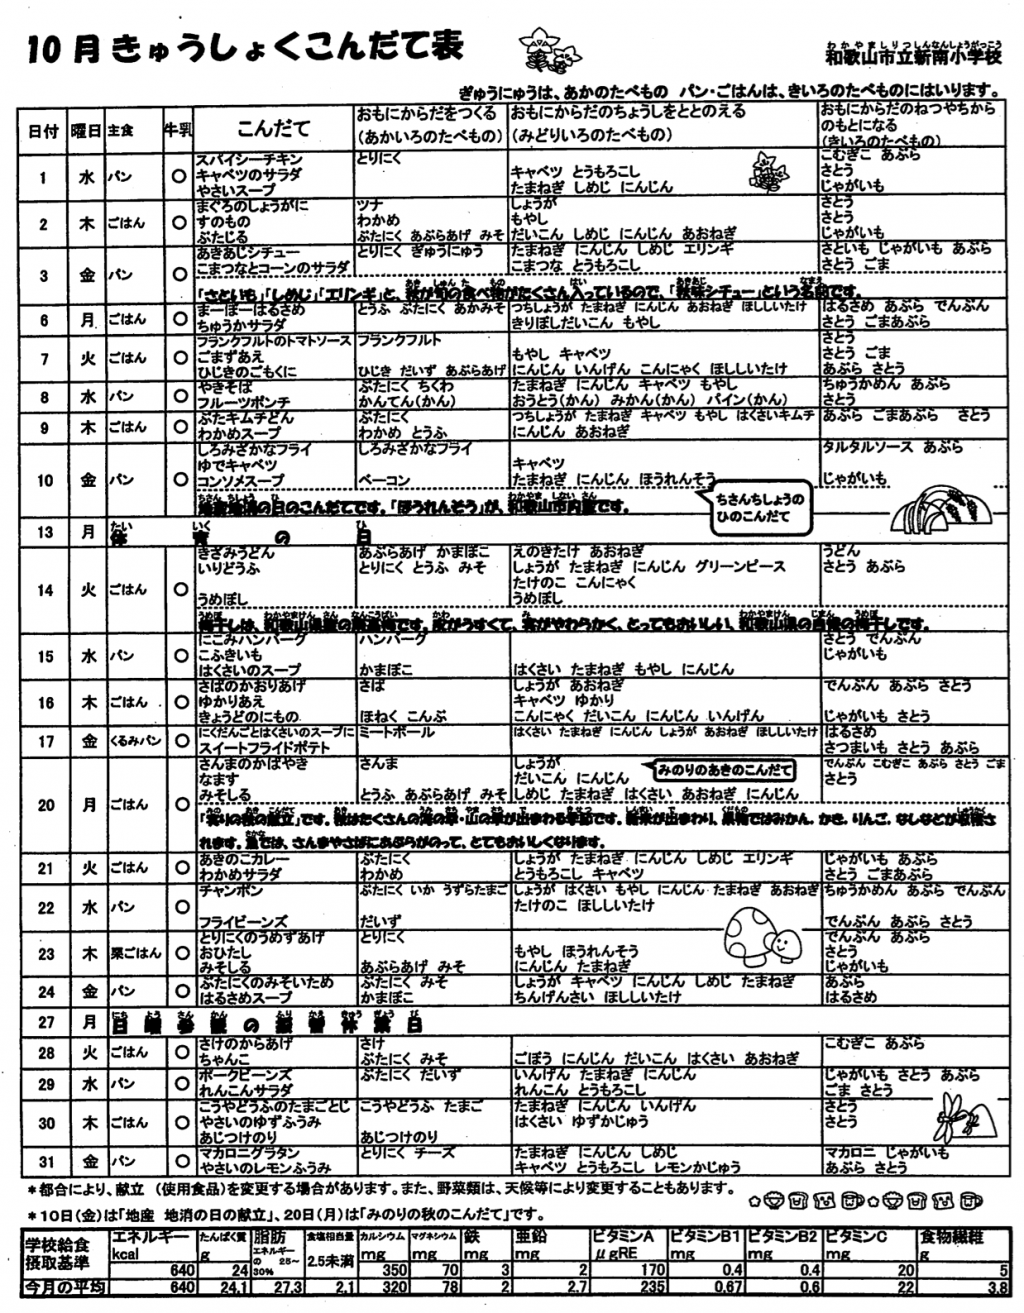 10月きゅうしょくこんだて表
わかやましりつしんなんしょうがっこう
和歌山市立新南小学校
ぎゅうにゅうは、あかのたべもの パン・ごはんは、きいろのたべものにはいります。
日付 曜日 主食 牛乳 こんだて おもにからだをつくる(あかいろのたべもの) おもにからだのちょうしをととのえる(みどりいろのたべもの) おもにからだのねつやちからのもとになる(きいろのたべもの)
1 水 パン ○ スパイシーチキン とりにく こむぎこ あぶら
キャベツのサラダ キャベツ とうもろこし さとう
やさいスープ たまねぎ しめじ にんじん じゃがいも
2 木 ごはん ○ まぐろのしょうがに ツナ しょうが さとう
すのもの わかめ もやし さとう
ぶたじる ぶたにく あぶらあげ みそ だいこん しめじ にんじん あおねぎ じゃがいも
3 金 パン ○ あきあじシチュー とりにく ぎゅうにゅう たまねぎ にんじん しめじ エリンギ さといも じゃがいも あぶら
こまつなとコーンのサラダ こまつな とうもろこし さとう ごま
「さといも」「しめじ」「エリンギ」と、秋が旬の食べ物がたくさん入っているので、「秋味シチュー」という名前です。
6 月 ごはん ○ まーぼーはるさめ とうふ ぶたにく あかみそ つちしょうが たまねぎ にんじん あおねぎ ほししいたけ はるさめ あぶら でんぷん
ちゅうかサラダ きりぼしだいこん もやし さとう ごまあぶら
7 火 ごはん ○ フランクフルトのトマトソース フランクフルト さとう
ごまずあえ もやし キャベツ さとう ごま
ひじきのごもくに ひじき だいず あぶらあげ にんじん いんげん こんにゃく ほししいたけ あぶら さとう
8 水 パン ○ やきそば ぶたにく ちくわ たまねぎ にんじん キャベツ もやし ちゅうかめん あぶら
フルーツポンチ かんてん(かん) おうとう(かん) みかん(かん) パイン(かん) さとう
9 木 ごはん ○ ぶたキムチどん ぶたにく つちしょうが たまねぎ キャベツ もやし はくさいキムチ あぶら ごまあぶら さとう
わかめスープ わかめ とうふ にんじん あおねぎ
10 金 パン ○ しろみざかなフライ しろみざかなフライ タルタルソース あぶら
ゆでキャベツ キャベツ
コンソメスープ ベーコン たまねぎ にんじん ほうれんそう じゃがいも
地産地消の日のこんだてです。「ほうれんそう」が、和歌山市内産です。
ちさんちしょうの
ひのこんだて
13 月 体育の日
14 火 ごはん ○ きざみうどん あぶらあげ かまぼこ えのきたけ あおねぎ うどん
いりどうふ とりにく とうふ みそ しょうが たまねぎ にんじん グリーンピース さとう あぶら
たけのこ こんにゃく
うめぼし うめぼし
梅干しは、和歌山県産の南高梅です。皮がうすくて、実がやわらかく、とってもおいしい、和歌山県の自慢の梅干しです。
15 水 パン ○ にこみハンバーグ ハンバーグ さとう でんぷん
こふきいも じゃがいも
はくさいのスープ かまぼこ はくさい たまねぎ もやし にんじん
16 木 ごはん ○ さばのかおりあげ さば しょうが あおねぎ でんぷん あぶら さとう
ゆかりあえ キャベツ ゆかり
きょうどのにもの ほねく こんぶ こんにゃく だいこん にんじん いんげん じゃがいも さとう
17 金 くるみパン ○ にくだんごとはくさいのスープに ミートボール はくさい たまねぎ にんじん しょうが あおねぎ ほししいたけ はるさめ
スイートフライドポテト さつまいも さとう あぶら
20 月 ごはん ○ さんまのかばやき さんま しょうが でんぷん こむぎこ あぶら さとう ごま
なます だいこん にんじん さとう
みそしる とうふ あぶらあげ みそ しめじ たまねぎ はくさい あおねぎ にんじん
みのりのあきのこんだて
「実りの秋の献立」です。秋はたくさんの海の幸・山の幸が出まわる季節です。新米が出まわり、果物ではみかん、かき、りんご、なしなどが収穫さ
れます。魚では、さんまやさばにあぶらがのって、とてもおいしくなります。
21 火 ごはん ○ あきのこカレー ぶたにく しょうが たまねぎ にんじん しめじ エリンギ じゃがいも あぶら
わかめサラダ わかめ とうもろこし キャベツ さとう ごまあぶら
22 水 パン ○ チャンポン ぶたにく いか うずらたまご しょうが はくさい もやし にんじん たまねぎ あおねぎ ちゅうかめん あぶら でんぷん
たけのこ ほししいたけ
フライビーンズ だいず でんぷん あぶら さとう
23 木 栗ごはん ○ とりにくのうめずあげ とりにく でんぷん あぶら
おひたし もやし ほうれんそう さとう
みそしる あぶらあげ みそ にんじん たまねぎ じゃがいも
24 金 パン ○ ぶたにくのみそいため ぶたにく みそ しょうが キャベツ にんじん しめじ たまねぎ あぶら
はるさめスープ かまぼこ ちんげんさい ほししいたけ はるさめ
27 月 日曜参観の振替休業日
28 火 ごはん ○ さけのからあげ さけ こむぎこ あぶら
ちゃんこ ぶたにく みそ ごぼう にんじん だいこん はくさい あおねぎ
29 水 パン ○ ポークビーンズ ぶたにく だいず いんげん たまねぎ にんじん じゃがいも さとう あぶら
れんこんサラダ れんこん とうもろこし ごま さとう
30 木 ごはん ○ こうやどうふのたまごとじ こうやどうふ たまご たまねぎ にんじん いんげん さとう
やさいのゆずふうみ はくさい ゆずかじゅう さとう
あじつけのり あじつけのり
31 金 パン ○ マカロニグラタン とりにく チーズ たまねぎ にんじん しめじ マカロニ じゃがいも
やさいのレモンふうみ キャベツ とうもろこし レモンかじゅう あぶら さとう
*都合により、献立 (使用食品)を変更する場合があります。また、野菜類は、天候等により変更することもあります。
*10日(金)は「地産 地消の日の献立」、20日(月)は「みのりの秋のこんだて」です。
学校給食摂取基準 エネルギー kcal たんぱく質 g 脂肪 エネルギーの 25~30% 食塩相当量 2.5未満 カルシウム mg マグネシウム mg 鉄 mg 亜鉛 mg ビタミンA μgRE ビタミンB1 mg ビタミンB2 mg ビタミンC mg 食物繊維 g
640 24 350 70 3 2 170 0.4 0.4 20 5
今月の平均 640 24.1 27.3 2.1 320 78 2 2.7 235 0.67 0.6 22 3.8